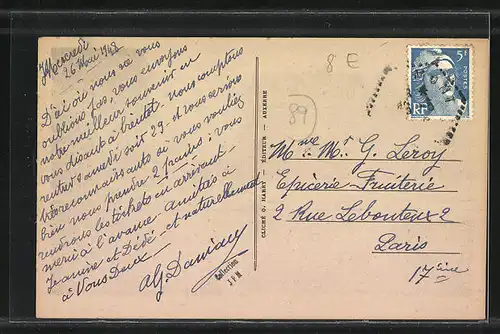 Mercredi
26 Mai 1948
D'ici où nous ne vous
oublions pas, vous envoyons
notre meilleur souvenir en
vous disant à bientôt. nous comptons
rentrer samedi soir 29. et vous serions
bien reconnaissants si vous vouliez
bien nous prendre 2 places: vous
rendrons les tickets en arrivant.
merci à l'avance. Amitiés à
Jeannine et Dédé. et naturellement
à Vous Deux.
Collection
J F M
CLICHÉ G. HARRY ÉDITEUR - AUXERRE
8 E
89
5F
POSTES
RF
Mme. Mr. G. Leroy
Epicerie-Fruiterie
2 Rue Lebouteux 2
Paris
17ème